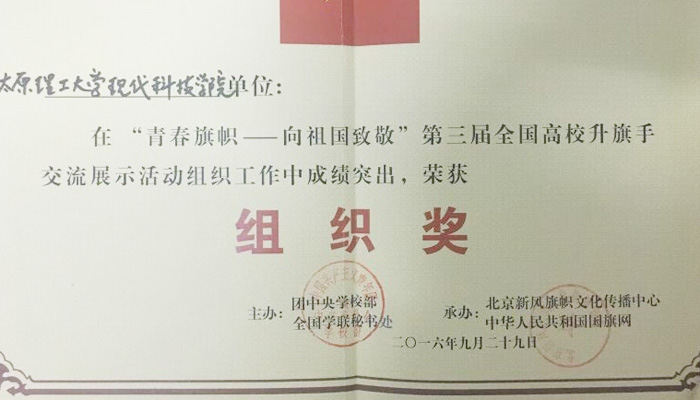 太原理工大学现代科技学院单位：
在“青春旗帜——向祖国致敬”第三届全国高校升旗手
交流展示活动组织工作中成绩突出，荣获
组织奖
主办：团中央学校部
全国学联秘书处
承办：北京新风旗帜文化传播中心
中华人民共和国国旗网
二〇一六年九月二十九日